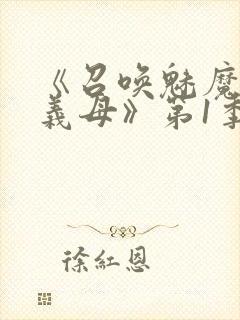 《召唤魅魔
義母》第1季
徐紅恩